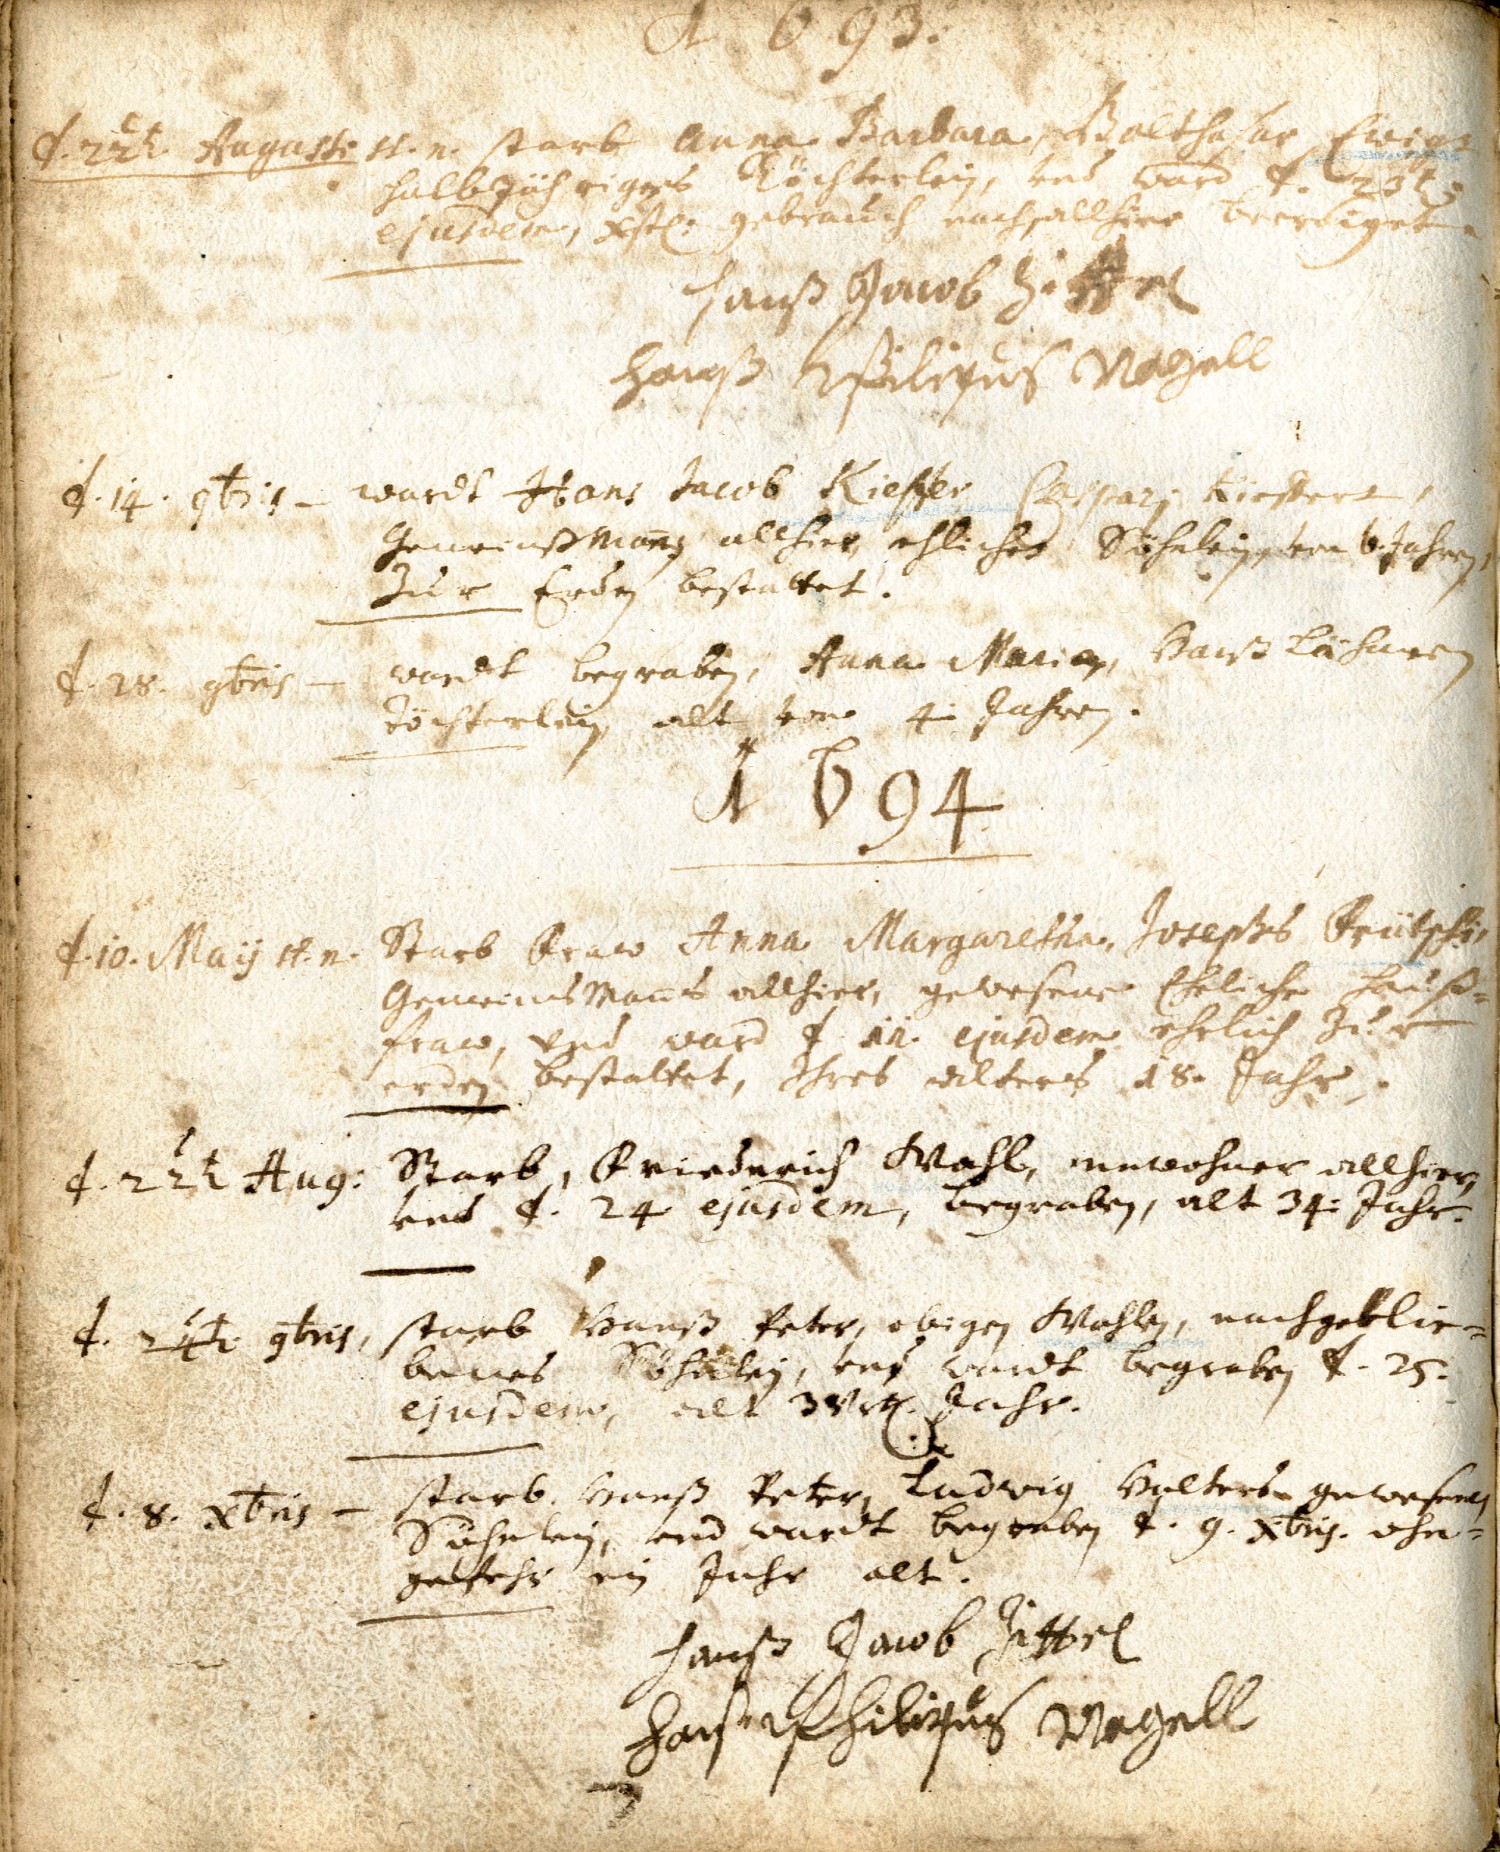 1693.
d. 22t. Augusti st. n. starb Anna Barbara, Balthasar
halbjährigers Töchterlein, und ward d. 23t.
ejusdem, xstl: gebrauch nach, allhier beerdiget.
Hanß Jacob Zittel
Hanß Philipus Nagell
d. 14. 9bris – wardt Hans Jacob Kieffer Caspari Kieffers,
Gemeinßmanß allhier, ehliches Söhnlein, von 6. Jahren,
Zur Erden bestattet.
d. 28. 9bris – wardt begraben, Anna Maria, Hanß
töchterlein, alt von 4. Jahren.
1694.
d. 10. Maij st. n. Starb Fraw Anna Margaretha, Josephs
Gemeinsmans allhier, gewesene Eheliche Hauß=
fraw, und ward d. 11. ejusdem ehrlich Zur
erden bestattet, Ihres alters 18. Jahr.
d. 22t Aug: Starb, Friederich Wahl, innwohner allhier,
und d. 24 ejusdem, begraben, alt 34. Jahr.
d. 24t. 9bris, starb Hanß Peter, obigen Wahlen, nachgeblie=
benes Söhnlein, und wardt begraben d. 25.
ejusdem, alt 3 Vrtl. Jahr.
d. 8. Xbris – starb Hanß Peter, Ludwig Walters gewesenes
Söhnlein, und wardt begraben d. 9. Xbris. ohn=
gefehr ein Jahr alt.
Hanß Jacob Zittel
Hanß Philipus Nagell